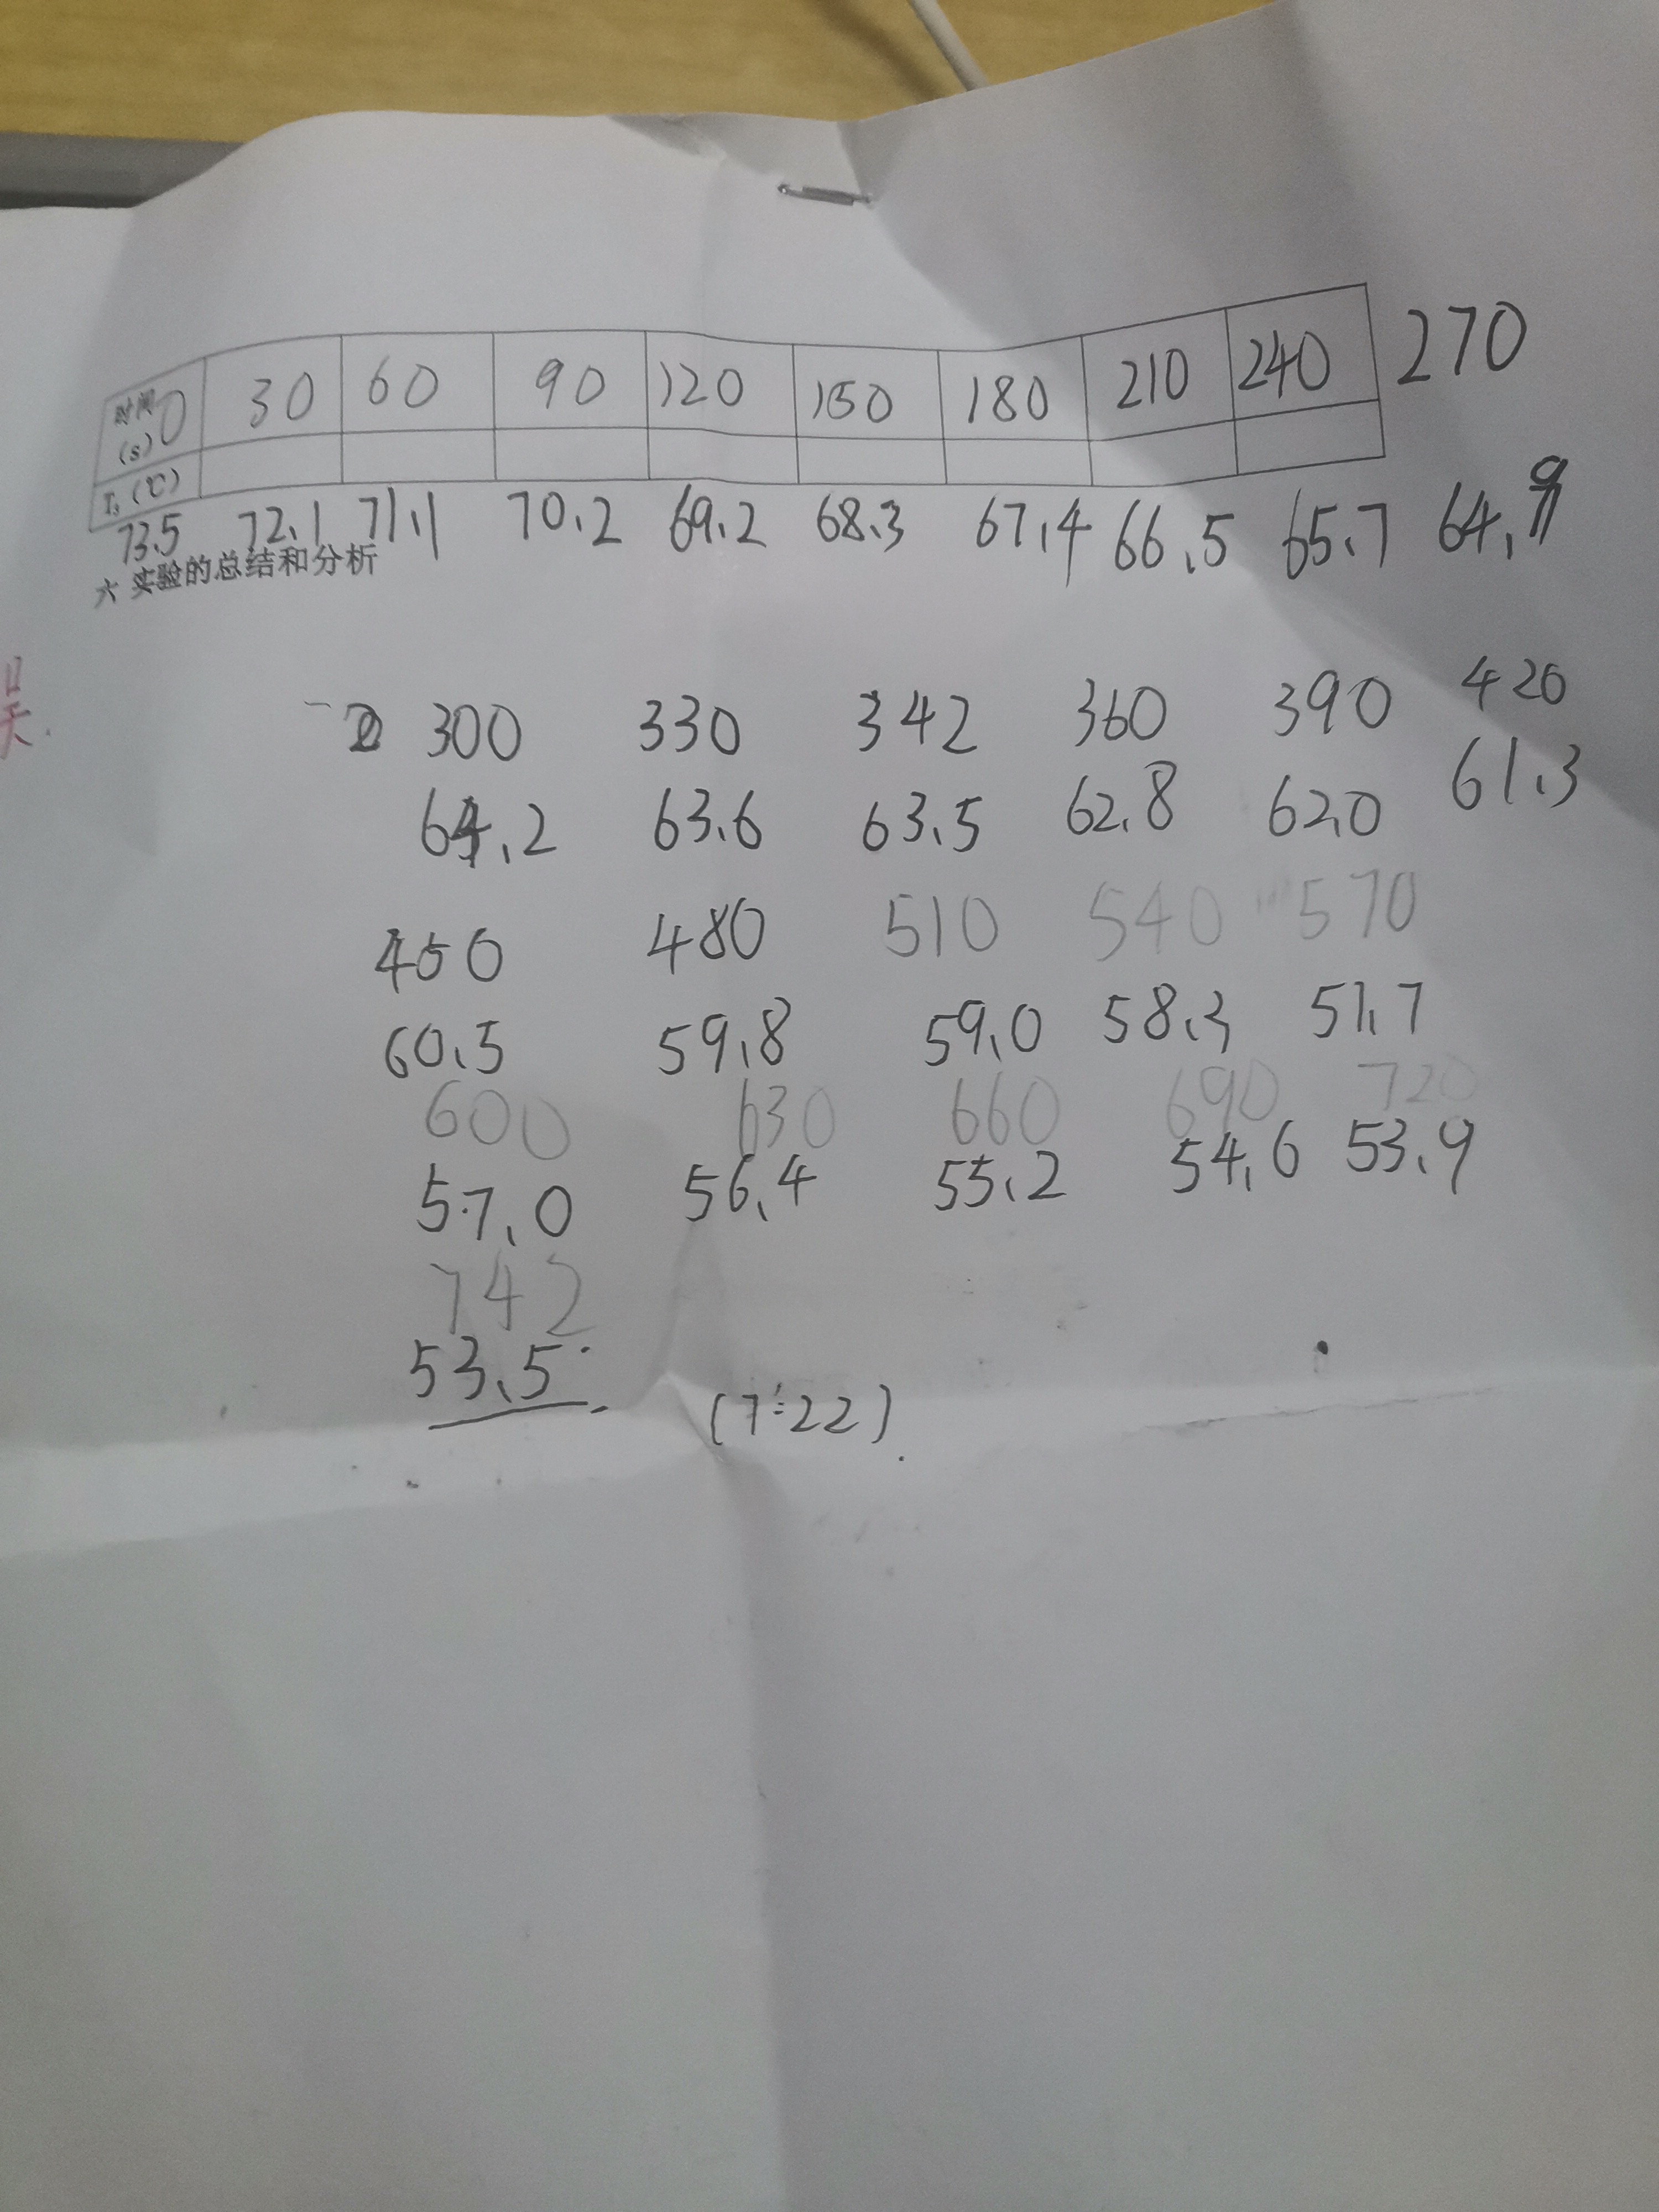 时间(s) 0 30 60 90 120 150 180 210 240 270
T₃(℃)
73.5 72.1 71.1 70.2 69.2 68.3 67.4 66.5 65.7 64.9
六 实验的总结和分析
300 330 342 360 390 420
64.2 63.6 63.5 62.8 62.0 61.3
450 480 510 540 570
60.5 59.8 59.0 58.3 57.7
600 630 660 690 720
57.0 56.4 55.2 54.6 53.9
742
53.5
(7:22).